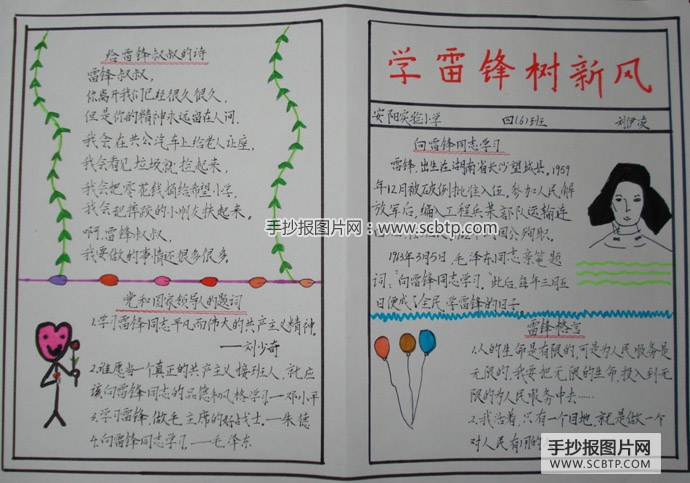 给雷锋叔叔的诗
雷锋叔叔,
你离开我们已经很久很久,
但是你的精神永远留在人间.
我会在共公汽车上给老人让座,
我会看见垃圾就捡起来,
我会把零花钱捐给希望小学,
我会把摔跤的小朋友扶起来,
啊,雷锋叔叔,
我要做的事情还很多很多.
党和国家领导人的题词
1.学习雷锋同志平凡而伟大的共产主义精神.
——刘少奇
2.谁愿当一个真正的共产主义接班人,就应
该向雷锋同志的品德和风格学习—邓小平
3.学习雷锋,做毛主席的好战士.—朱德
4.向雷锋同志学习.—毛泽东
学雷锋树新风
安阳实验小学 四(6)班 刘伊凌
向雷锋同志学习
雷锋,出生在湖南省长沙望城县,1959
年12月被破例批准入伍,参加人民解
放军后,编入工程兵某部队运输连
因公殉职.
1963年3月5日,毛泽东同志亲笔题
词:"向雷锋同志学习."此后,每年三月五
日便成了全民学雷锋的日子.
雷锋格言
1.人的生命是有限的,可是为人民服务是
无限的,我要把无限的生命,投入到无
限的为人民服务中去……
2.我活着,只有一个目地,就是做一个
对人民有用的
手抄报图片网:www.scbtp.com
手抄报图片网
WWW.SCBTP.COM